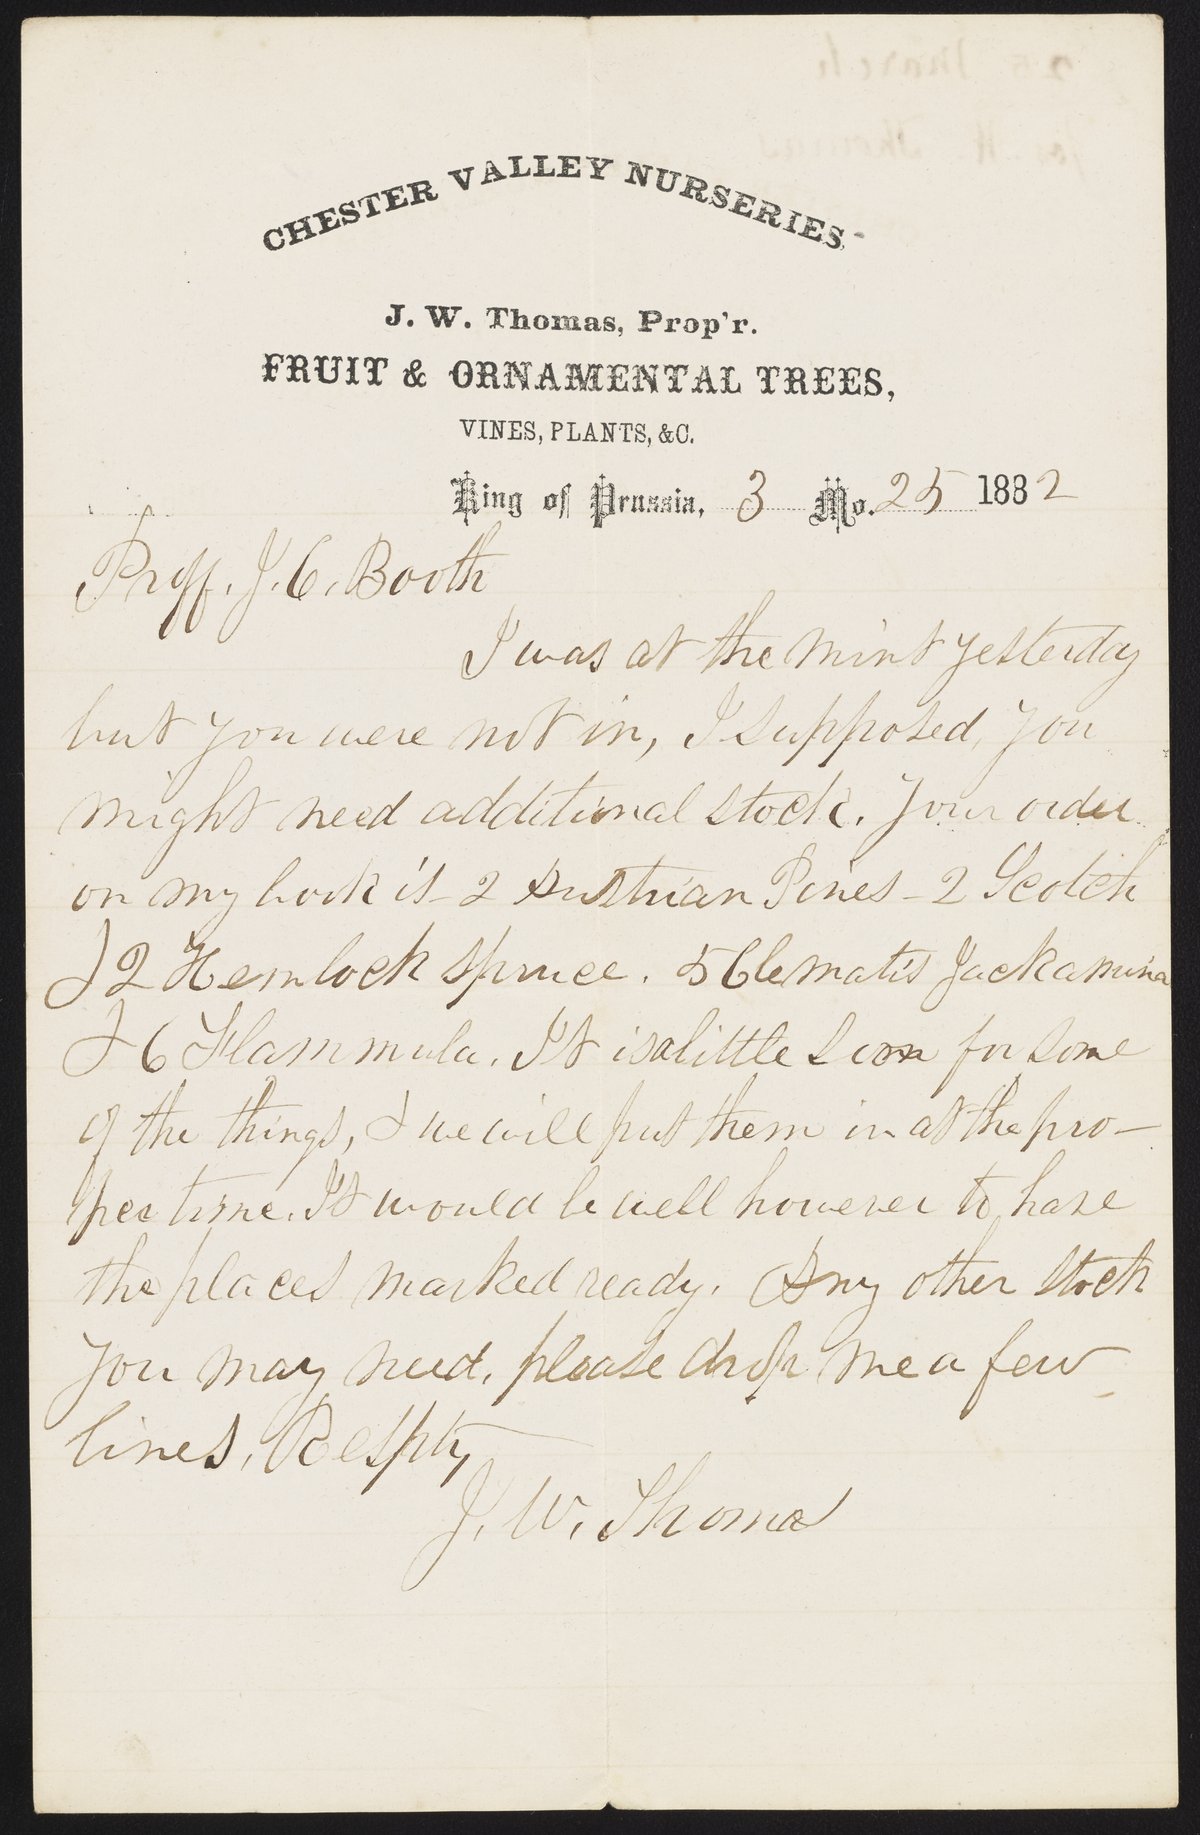 CHESTER VALLEY NURSERIES,
J. W. Thomas, Prop'r.
FRUIT & ORNAMENTAL TREES,
VINES, PLANTS, &C.
King of Prussia, 3 Mo. 25 1882
Proff. J. C. Booth
I was at the Mint yesterday
but you were not in, I supposed you
might need additional stock. Your order
on my book is - 2 Austrian Pines - 2 Scotch
& 2 Hemlock Spruce. 5 Clematis Jackamina
& 6 Flammula. It is a little soon for some
of the things, & we will put them in at the pro-
per time. It would be well however to have
the places marked ready. Any other stock
you may need, please drop me a few
lines, Respty
J. W. Thomas